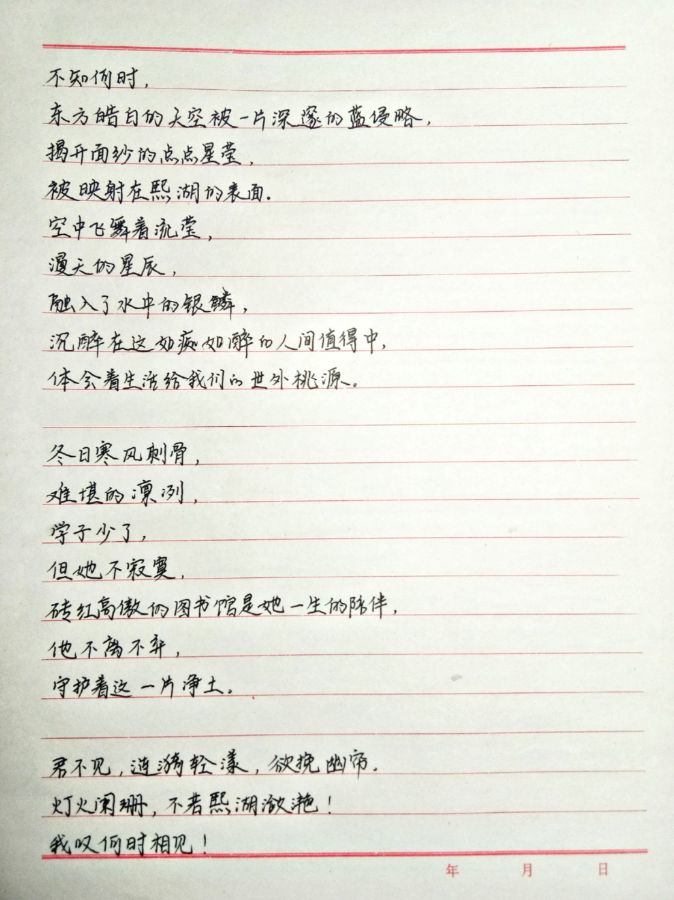 不知何时，
东方皓白的天空被一片深邃的蓝侵略，
揭开面纱的点点星莹，
被映射在熙湖的表面.
空中飞舞着流莹，
漫天的星辰，
融入了水中的银鳞，
沉醉在这如痴如醉的人间值得中，
体会着生活给我们的世外桃源。
冬日寒风刺骨，
难堪的凛冽，
学子少了，
但她不寂寞，
砖红高傲的图书馆是她一生的陪伴，
他不离不弃，
守护着这一片净土。
君不见，涟漪轻漾，欲挽幽帘.
灯火阑珊，不若熙湖潋滟！
我叹何时相见！
年 月 日